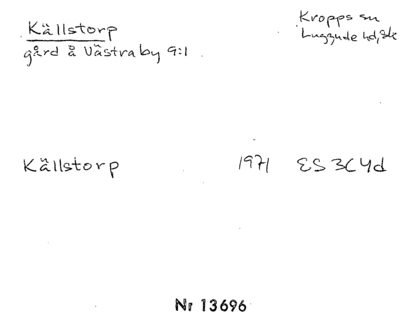 Källstorp
gård å Västraby 9:1
Kropps sn
Luggude hd, Sk
Källstorp 1971 ES 3C4d
Nr 13696